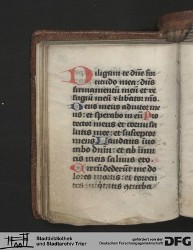 Diligam te dñe for
titudo mea: dñs
firmamentũ meũ et re
fugiũ meũ et liberator mꝰ.
Deus meus adiutor me
us: et sperabo in eũ Pro
tector meus et cornu sa
lutis mee: et susceptor
meus Laudans inuo
cabo dñm: et ab inimi
cis meis saluus ero.
Circũdederũt me do
lores mortis: et torren
tes iniquitatis
Stadtbibliothek
und Stadtarchiv Trier
gefördert von der
Deutschen Forschungsgemeinschaft
DFG